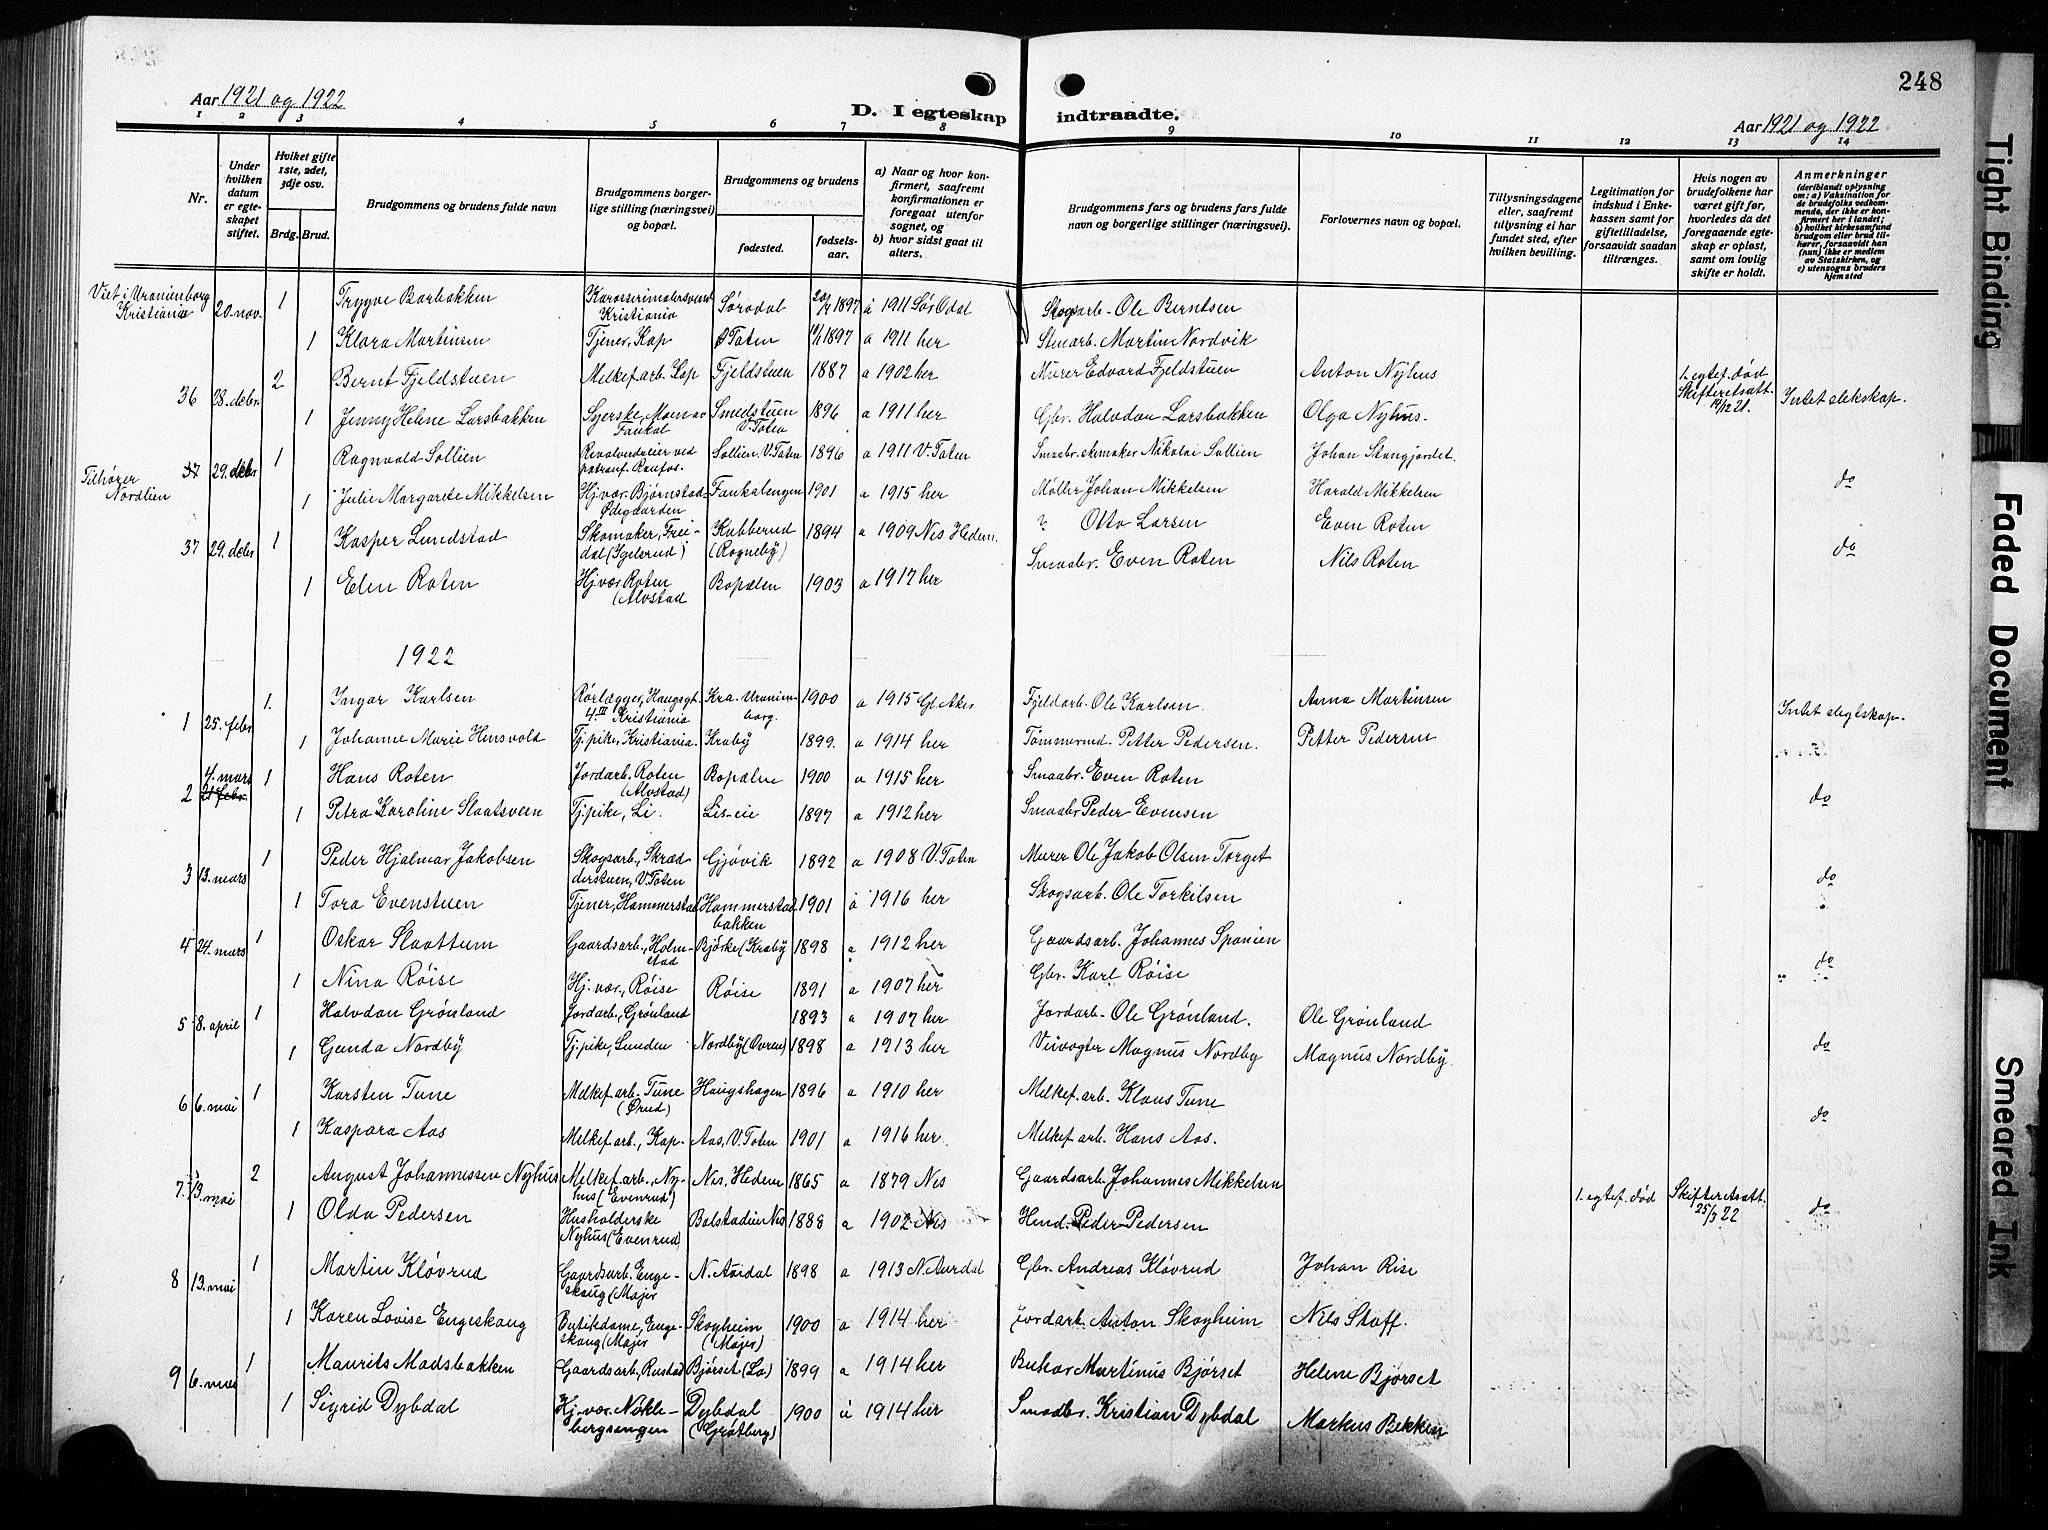 248
Aar 1921 og 1922
D. I egteskap indtraadte.
Aar 1921 og 1922
1 2 3 4 5 6 7 8 9 10 11 12 13 14
Nr.
Under hvilken datum er egteskapet stiftet.
Hviket gifte 1ste, 2det, 3dje osv.
Brdg. Brud.
Brudgommens og brudens fulde navn
Brudgommens borgerlige stilling (næringsvei) og bopæl.
Brudgommens og brudens
fødested. fødselsaar.
a) Naar og hvor konfirmert, saafremt konfirmationen er foregaat utenfor sognet, og
b) hvor sidst gaat til alters.
Brudgommens fars og brudens fars fulde navn og borgerlige stillinger (næringsvei).
Forlovernes navn og bopæl.
Tillysningsdagene eller, saafremt tillysning ei har fundet sted, efter hvilken bevilling.
Legitimation for indskud i Enkekassen samt for giftetilladelse, forsaavidt saadan tiltrænges.
Hvis nogen av brudefolkene har været gift før, hvorledes da det foregaaende egteskap er opløst, samt om lovlig skifte er holdt.
Anmerkninger
(deriblandt oplysning om: a) Vaksination for de brudefolks vedkommende, der ikke er konfirmert her i landet; b) hvilket kirkesamfund brudgom eller brud tilhører, forsaavidt han (hun) ikke er medlem av Statskirken, og c) utensogns bruders hjemsted
Viet i Uranienborg Kristiania 20. nov. 1 Trygve Borbakken Kristiania Sørodal 20/4 1897 a 1911 Sør Odal Skogsarb. Ole Berntsen
1 Klara Martinsen Tjener, Kap Ø Toten 1897 a 1911 her Stenarb. Martin Nordvik
36 28. debr. 2 Bernt Fjeldstuen Melkef. arb. Kap Fjeldstuen 1887 a 1902 her Murer Edvard Fjeldstuen Anton Nyhus 1. egtef. død Skifteretsatt. 19/12 21. Intet slekskap.
1 Jenny Helene Larsbakken Syerske, Moen av Faukal Smedstuen V. Toten 1896 a 1911 her Gbr. Halvdan Larsbakken Olga Nyhus.
Tilhører Nordlien 37 29. debr 1 Ragnvald Sollien ved patronf. Raufos. Sollien. V. Toten 1896 a 1911 V. Toten Smaabr. skomaker Nikolai Sollien Johan Stangjordet.
1 Julie Margarete Mikkelsen Hj. vær. Bjørnstad-Ødegaarden Faukalengen 1901 a 1915 her Møller Johan Mikkelsen Harald Mikkelsen do
37 29. debr 1 Kasper Lundstad Skomaker, Freidal (Igelsrud) Kubberud (Rogneby) 1894 a 1909 Nes Hedem. Otto Larsen Even Roten
1 Elen Roten Hj. vær Roten (Alvstad Bopælen 1903 a 1917 her Smaabr. Even Roten Nils Roten do
1922
1 25. febr. 1. Ingar Karlsen Rørlægger, Haugsgt. 4 III Kristiania Kra. Uranienborg. 1900 a 1915 Gl. Aker Fjeldarb. Ole Karlsen. Anna Martinsen Intet slegtskap.
1 Johanne Marie Hensvold Tj. pike, Kristiania. Kraby 1899. a 1914 her Tømmermd. Petter Pedersen. Petter Pedersen
2 4. mars 21 febr. 1 Hans Roten Jordarb. Roten (Alvstad) Bopælen 1900 a 1915 her Smaabr. Even Roten do
1 Petra Karoline Slaatsveen Tj. pike, Li. Lis-eie 1897 a 1912 her Smaabr Peder Evensen
3 13. mars 1 Peder Hjalmar Jakobsen Skogsarb., Skrædderstuen, V. Toten Gjøvik 1892 a 1908 V. Toten Murer Ole Jakob Olsen Torget do
1 Tora Evenstuen Tjener, Hammerstad Hammerstadbakken 1901 a 1916 her Skogsarb. Ole Torkilsen
4 24. mars 1 Oskar Slaattum Gaardsarb., Holmstad Bjørke (Kraby 1898 a 1912 her Gaardsarb. Johannes Spanien do
1 Nina Røise Hj. vær., Røise Røise 1891 a 1907 her Gbr. Karl Røise
5 8. april 1 Halvdan Grønland Jordarb., Grønland 1893 a 1907 her Jordarb. Ole Grønland. Ole Grønland
1 Gunda Nordby Tj. pike, Lunden Nordby (Ovren) 1898 a 1913 her Veivogter Magnus Nordby Magnus Nordby do
6 6. mai 1 Karsten Tune Melkef. arb. Tune (Ørud) Haugshagen 1896 a 1910 her Melkef. arb. Klaus Tune
1 Kaspara Aas Melkef. arb., Kap Aas, V. Toten 1901 a 1916 her Melkef. arb. Hans Aas. do
7. 13. mai 2 August Johannessen Nyhus Melkef. arb., Nyhus (Evenrud) Nes, Hedem 1865 a 1879 Nes Gaardsarb. Johannes Mikkelsen 1. egtef. død Skifteretsatt. 25/3 22 do
1 Olda Pedersen Husholderske Nyhus (Evenrud) Bolstadien Nes 1888 a 1902 Nes Hmd. Peder Pedersen
8 13. mai 1 Martin Kløvrud Gaardsarb. Engeskaug (Majer N. Aurdal 1898 a 1913 N. Aurdal Gbr. Andreas Kløvrud Johan Rise
1 Karen Lovise Engeskaug Butikdame, Engeskaug (Majer Skogheim (Majer) 1900 a 1914 her Jordarb. Anton Skogheim Nils Staff.
9 6. mai 1 Maurits Madsbakken Gaardsarb., Rustad Bjørset (Lo) 1899 a 1914 her Martinus Bjørset Helene Bjørset
1 Sigrid Dybdal Hj. vær. Nøklebergsengen Dybdal (Grøtberg) 1900 a 1914 her Smaabr. Kristian Dybdal Markus Bekken
Tight Binding
Faded Document
Smeared Ink